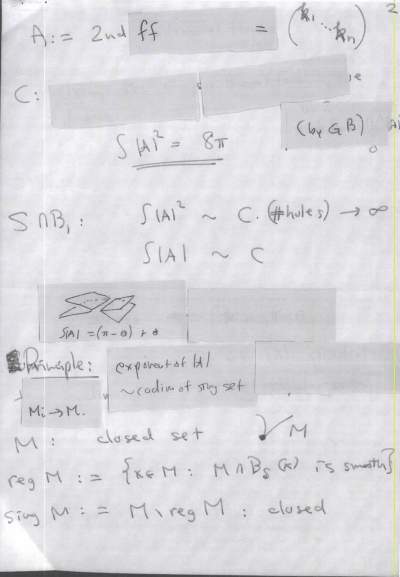 A := 2nd ff = (k₁ ⋱ kₙ) 2
C:
(by GB)
∫|A|² = 8π
S∩B₁: ∫|A|² ~ C·(#holes) → ∞
∫|A| ~ C
∫|A| = (π-θ) + θ
Principle: exponent of |A|
~codim of sing set
Mi → M.
M: closed set M
reg M := {x∈M: M∩Bδ(x) is smooth}
sing M := M\reg M : closed